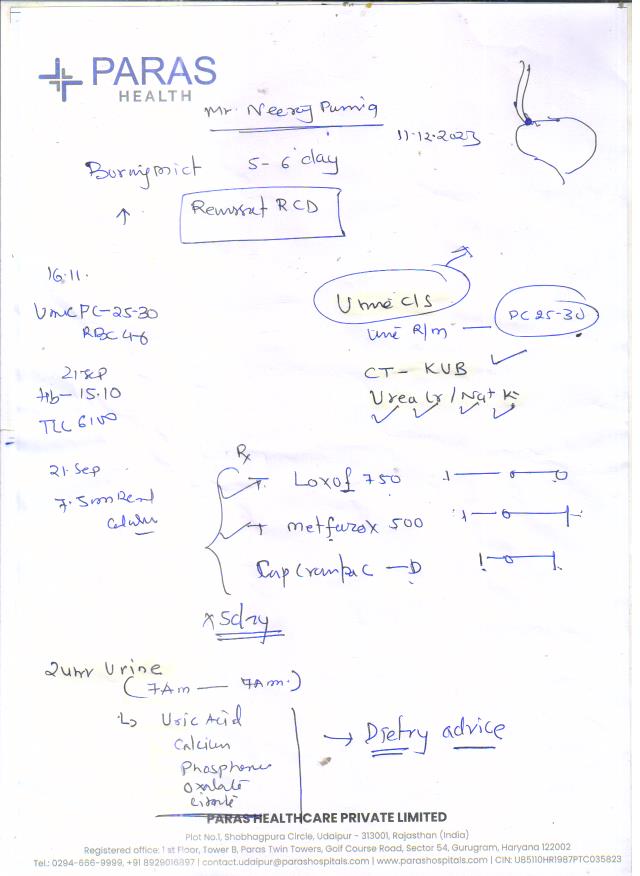 PARAS
HEALTH
Mr. Neeraj Pumia
11-12-2023
Burning mict 5-6 day
↑
RCD
16.11.
Urine PC-25-30
RBC 4-6
21-sep
Hb-15.10
TLC 6100
Urine C/S
Urine R/m — PC 25-30
CT- KUB
Urea Cr / Nat K
21. Sep
7.5mm Renal
calculus
Rx
T. Loxof 750 1 — 0 — 0
T metfurox 500 1 — 0 — 1
Cap — D 1 — 0 — 1
x 5day
24hr Urine
(7Am — 7Am.)
↳ Uric Acid
Calcium
Phosphorus
Oxalate
Citrate
→ Dietry advice
PARAS HEALTHCARE PRIVATE LIMITED
Plot No.1, Shobhagpura Circle, Udaipur - 313001, Rajasthan (India)
Registered office: 1 st Floor, Tower B, Paras Twin Towers, Golf Course Road, Sector 54, Gurugram, Haryana 122002
Tel.: 0294-666-9999, +91 8929016897 | contact.udaipur@parashospitals.com | www.parashospitals.com | CIN: U85110HR1987PTC035823